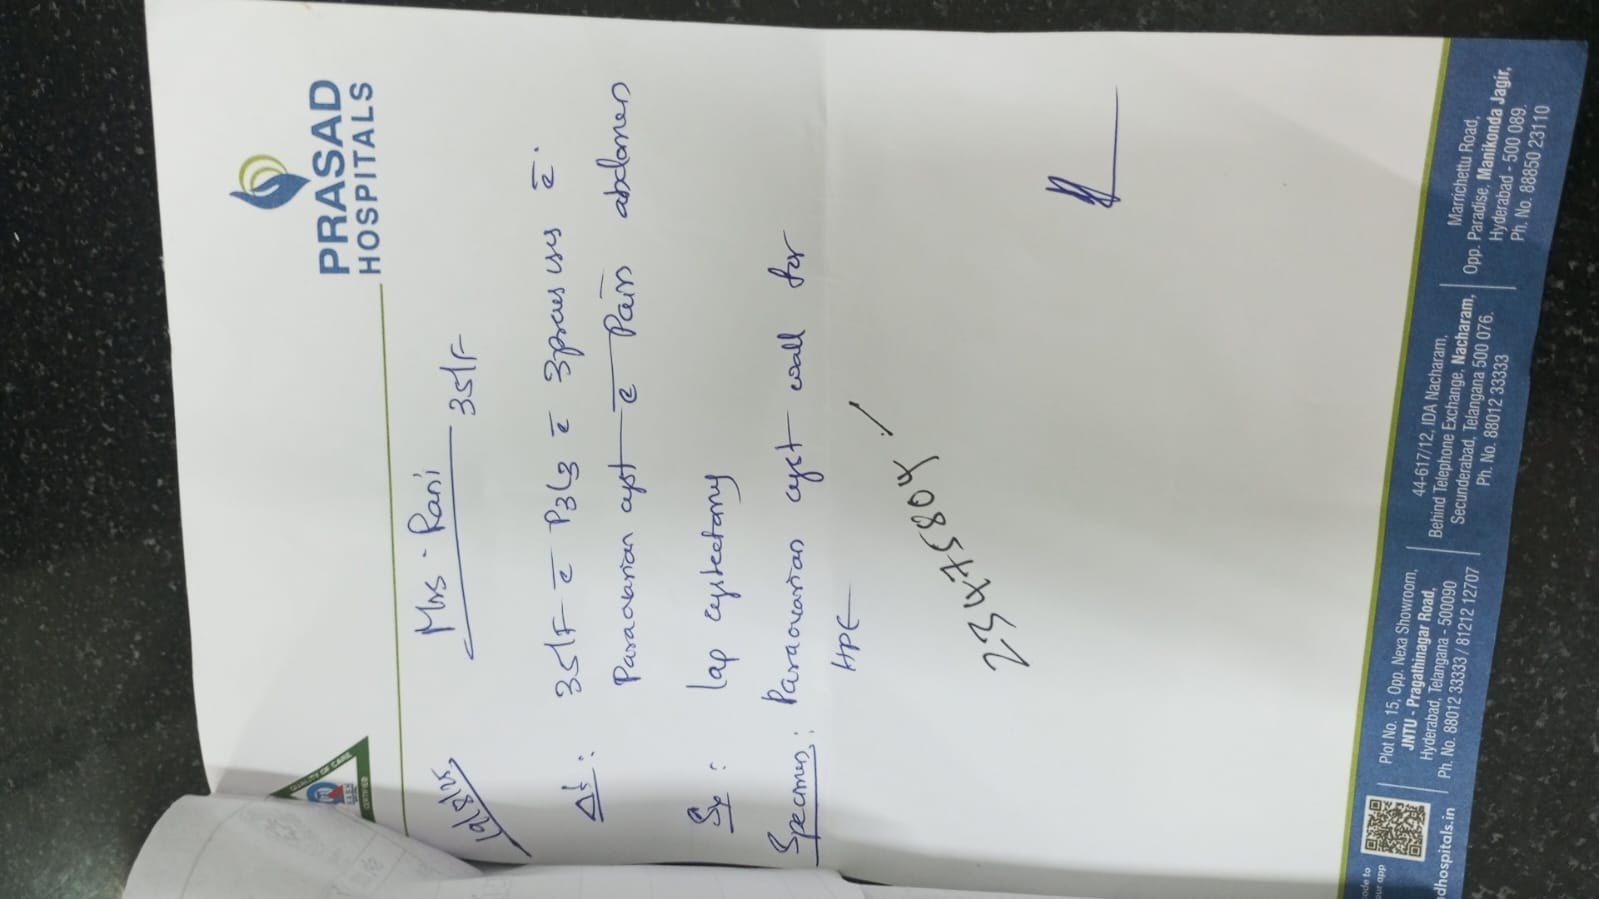 PRASAD
HOSPITALS
QUALITY OF CARE
CERTIFIED
19/8/25
Mrs. Rani 35/F
Δs: 35/F c̄ P3L3 c̄ 3 previous c̄
Paraovarian cyst c̄ Pain abdomen
Sx: lap cystectomy
Specimen: Paraovarian cyst wall for
HPE
23475804
Plot No. 15, Opp. Nexa Showroom,
JNTU - Pragathinagar Road,
Hyderabad, Telangana - 500090
Ph. No. 88012 33333 / 81212 12707
44-617/12, IDA Nacharam,
Behind Telephone Exchange, Nacharam,
Secunderabad, Telangana 500 076.
Ph. No. 88012 33333
Marrichettu Road,
Opp. Paradise, Manikonda Jagir,
Hyderabad - 500 089.
Ph. No. 88850 23110
ode to
our app
dhospitals.in